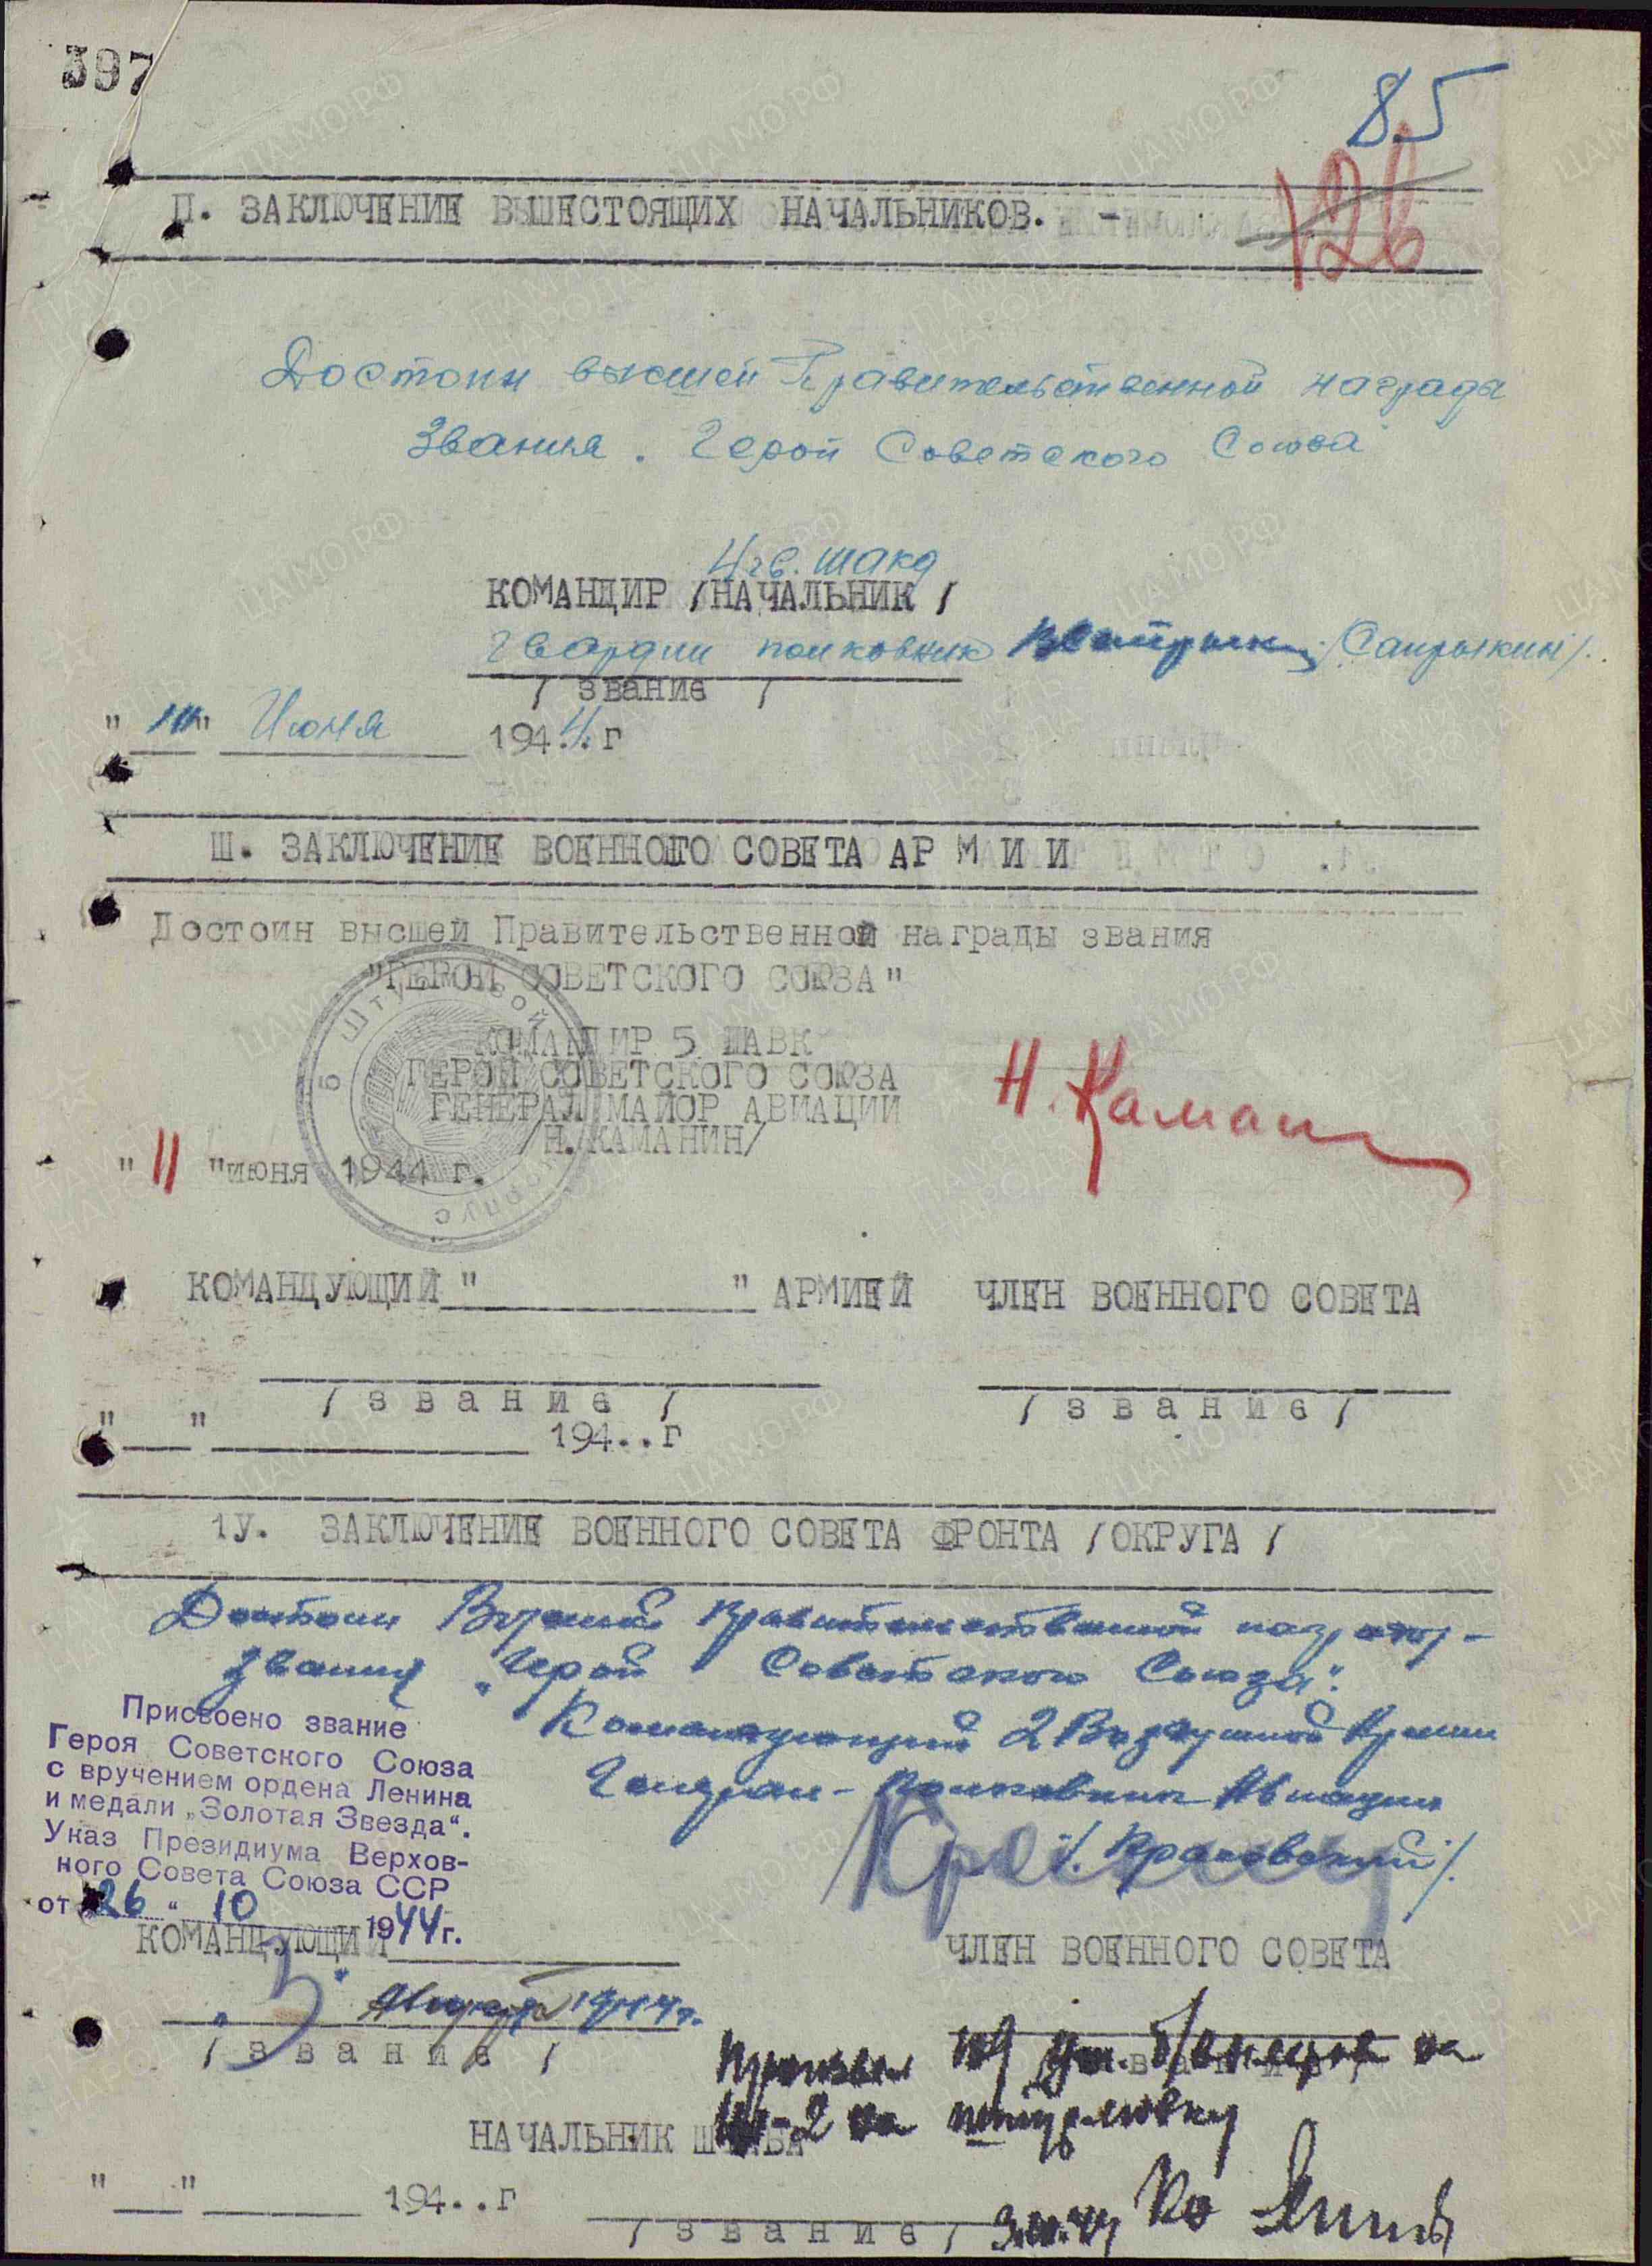 397
85
126
П. ЗАКЛЮЧЕНИЕ ВЫШЕСТОЯЩИХ НАЧАЛЬНИКОВ. -
Достоин высшей Правительственной награды
Звания. Герой Советского Союза
4 гв. шакд
КОМАНДИР /НАЧАЛЬНИК/
гвардии полковник /Сапрыкин/.
/ звание /
" " Июня 1944 г
Ш. ЗАКЛЮЧЕНИЕ ВОЕННОГО СОВЕТА АР М И И
Достоин высшей Правительственной награды звания
"ГЕРОЙ СОВЕТСКОГО СОЮЗА"
КОМАНДИР 5 ШАВК
ГЕРОЙ СОВЕТСКОГО СОЮЗА
ГЕНЕРАЛ МАЙОР АВИАЦИИ
/Н. КАМАНИН/
Н. Каманин
5 Штурмовой корпус
"11 "июня 1944 г.
КОМАНДУЮЩИЙ " " АРМИЕЙ ЧЛЕН ВОЕННОГО СОВЕТА
/ з в а н и е / / з в а н и е /
" " 194..г
1У. ЗАКЛЮЧЕНИЕ ВОЕННОГО СОВЕТА ФРОНТА /ОКРУГА/
Достоин Высшей Правительственной награды -
звания „Герой Советского Союза".
Командующий 2 Воздушной Армии
Генерал-Полковник Авиации
/Красовский/.
Присвоено звание
Героя Советского Союза
с вручением ордена Ленина
и медали „Золотая Звезда".
Указ Президиума Верхов-
ного Совета Союза ССР
от 26 " 10 1944 г.
КОМАНДУЮЩИЙ ЧЛЕН ВОЕННОГО СОВЕТА
„5" Августа 1944 г.
/ з в а н и е /
Произвел 109 б/вылетов на
Ил-2 на штурмовку
НАЧАЛЬНИК ШТАБА
" " 194..г
/ з в а н и е /